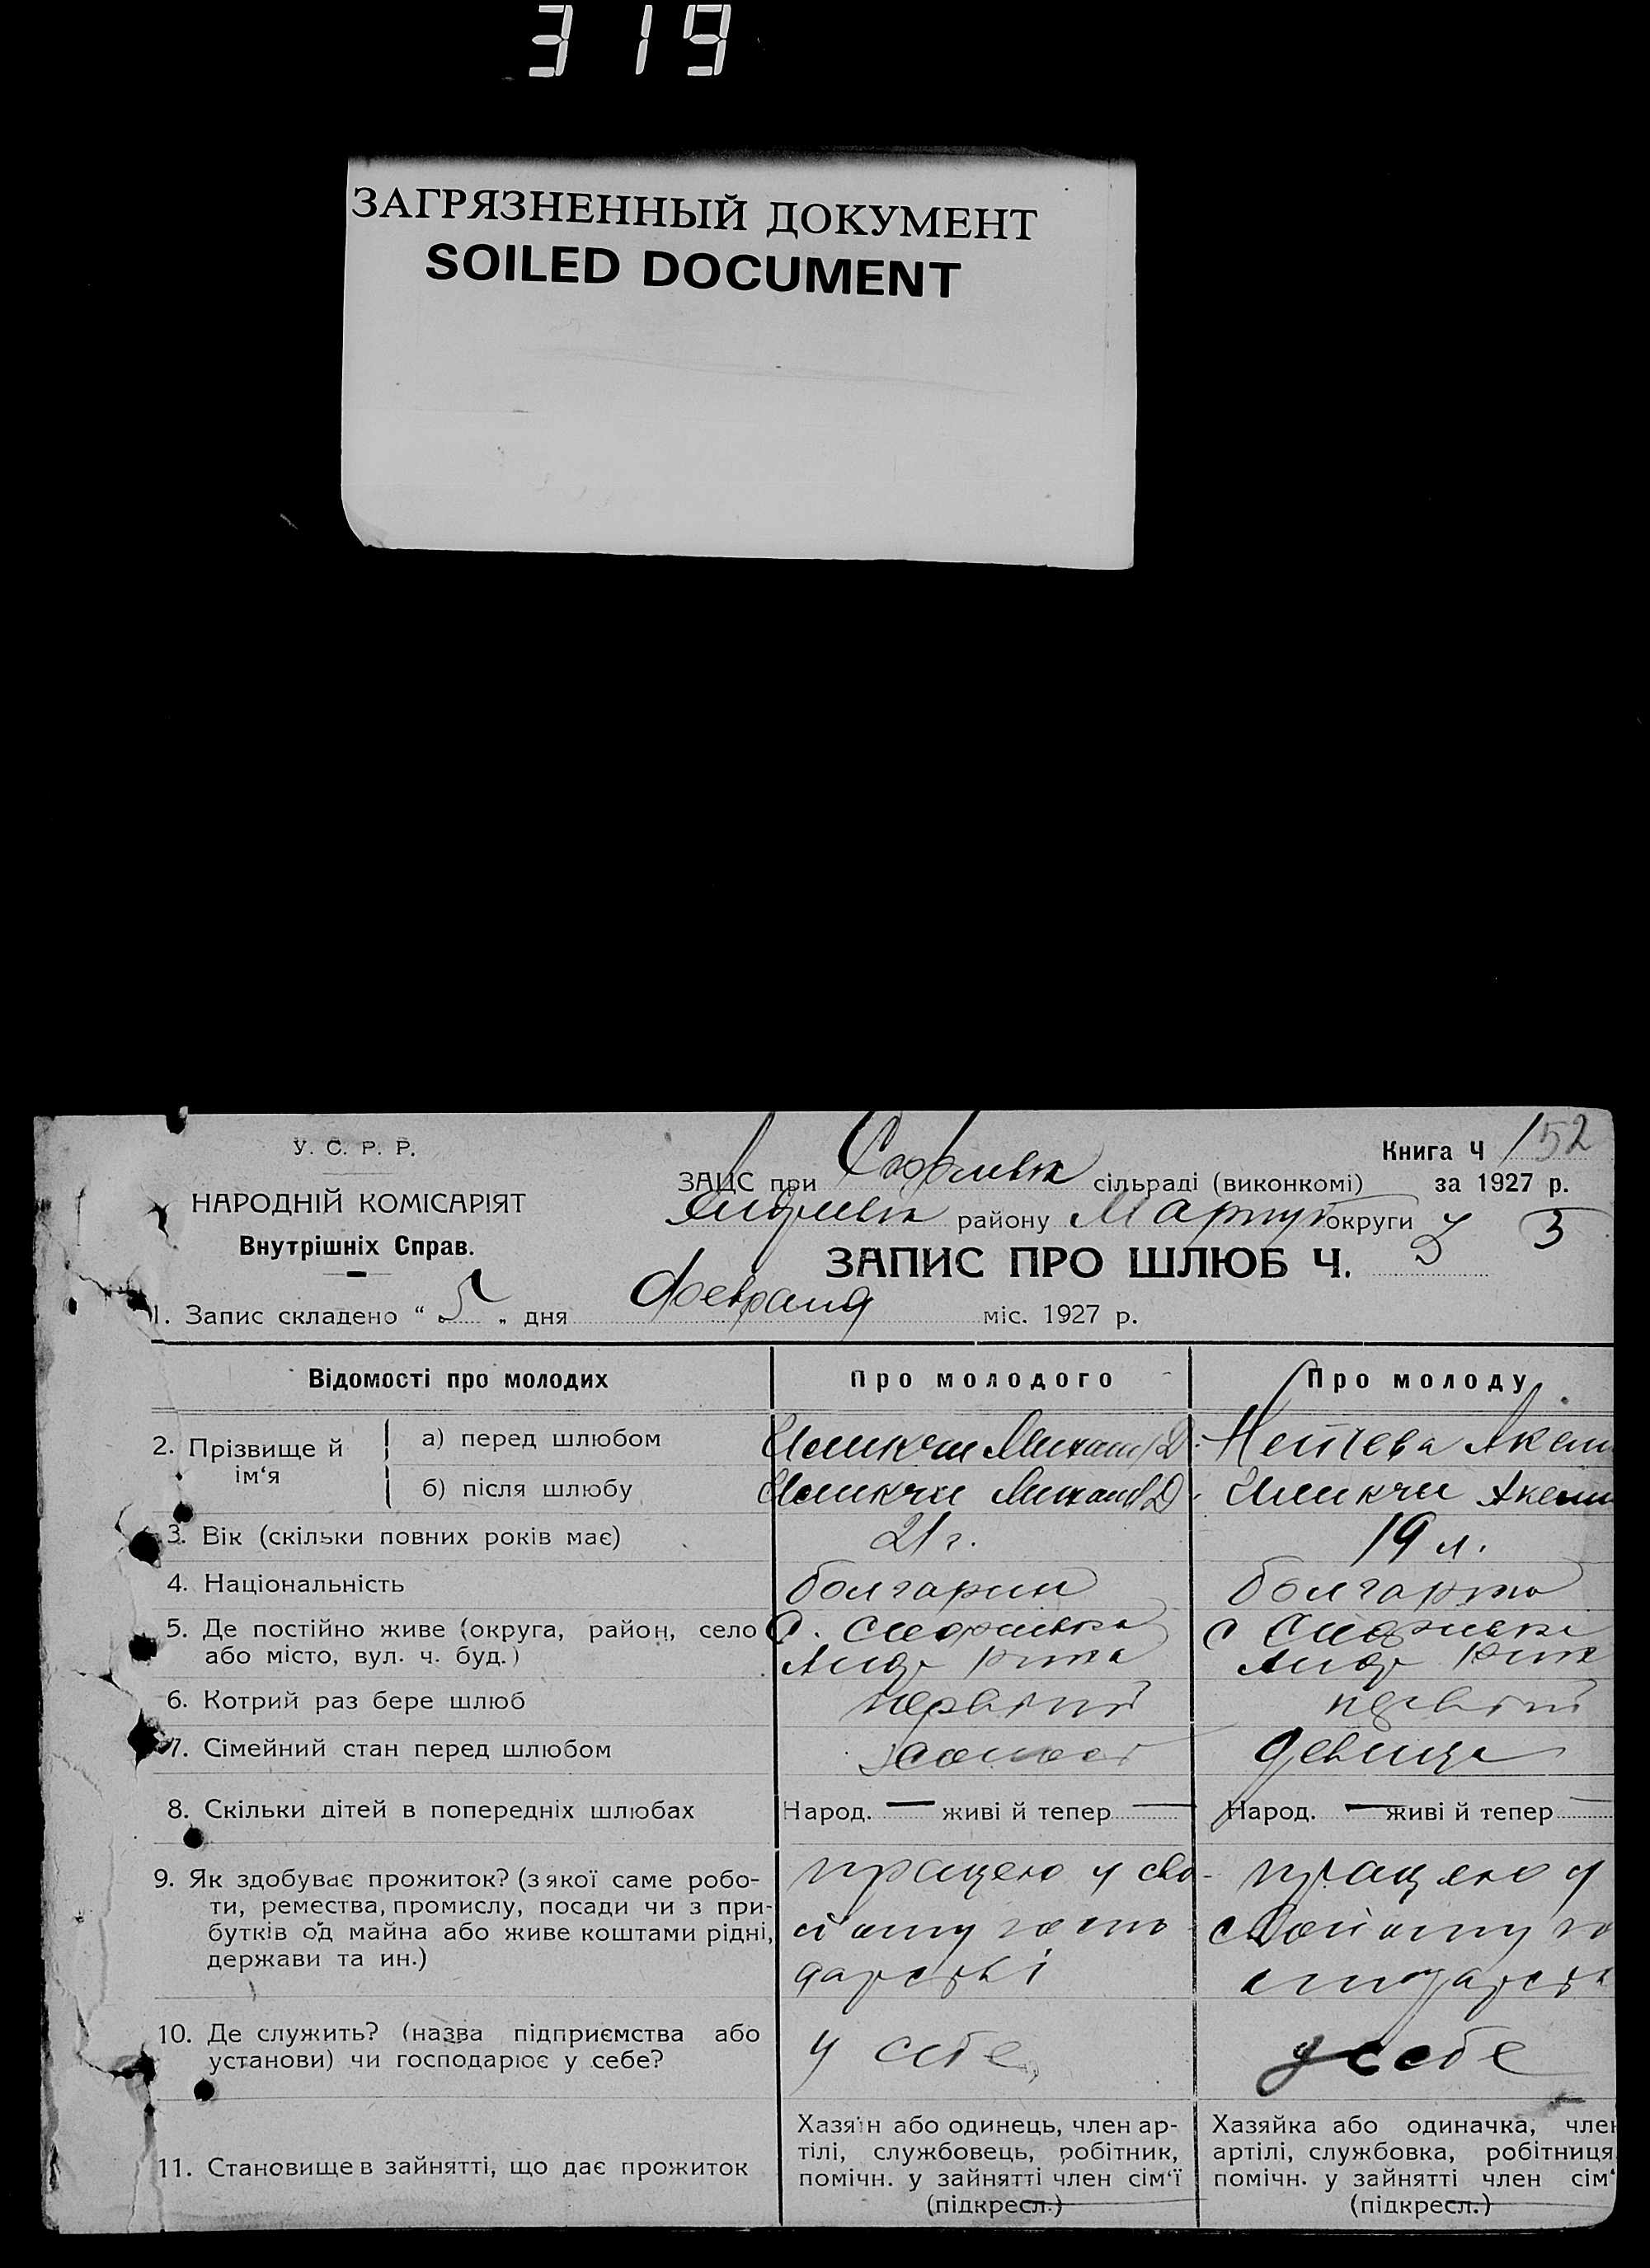 319
ЗАГРЯЗНЕННЫЙ ДОКУМЕНТ
SOILED DOCUMENT
У. С. Р. Р.
НАРОДНІЙ КОМІСАРІЯТ
Внутрішніх Справ.
Книга Ч 152
ЗАЦС при сільраді (виконкомі) за 1927 р.
району Мариуп округи 3
ЗАПИС ПРО ШЛЮБ Ч. 3
1. Запис складено “ 5 „ дня Февраля міс. 1927 р.
Відомості про молодих
Про молодого
Про молоду
2. Прізвище й ім‘я
а) перед шлюбом
Михаил Д.
б) після шлюбу
Михаил Д.
3. Вік (скільки повних років має)
21 г.
19 л.
4. Національність
болгарин
болгарка
5. Де постійно живе (округа, район, село
або місто, вул. ч. буд.)
6. Котрий раз бере шлюб
7. Сімейний стан перед шлюбом
холост
девица
8. Скільки дітей в попередніх шлюбах
Народ. — живі й тепер —
Народ. — живі й тепер —
9. Як здобуває прожиток? (з якої саме робо-
ти, ремества, промислу, посади чи з при-
бутків од майна або живе коштами рідні,
держави та ин.)
працею у сво-
йому госпо
дарстві
працею у
свойому го
сподарств
10. Де служить? (назва підприємства або
установи) чи господарює у себе?
у себе
у себе
11. Становище в зайнятті, що дає прожиток
Хазяїн або одинець, член ар-
тілі, службовець, робітник,
помічн. у зайнятті член сім‘ї
(підкресл.)
Хазяйка або одиначка, член
артілі, службовка, робітниця
помічн. у зайнятті член сім‘
(підкресл.)